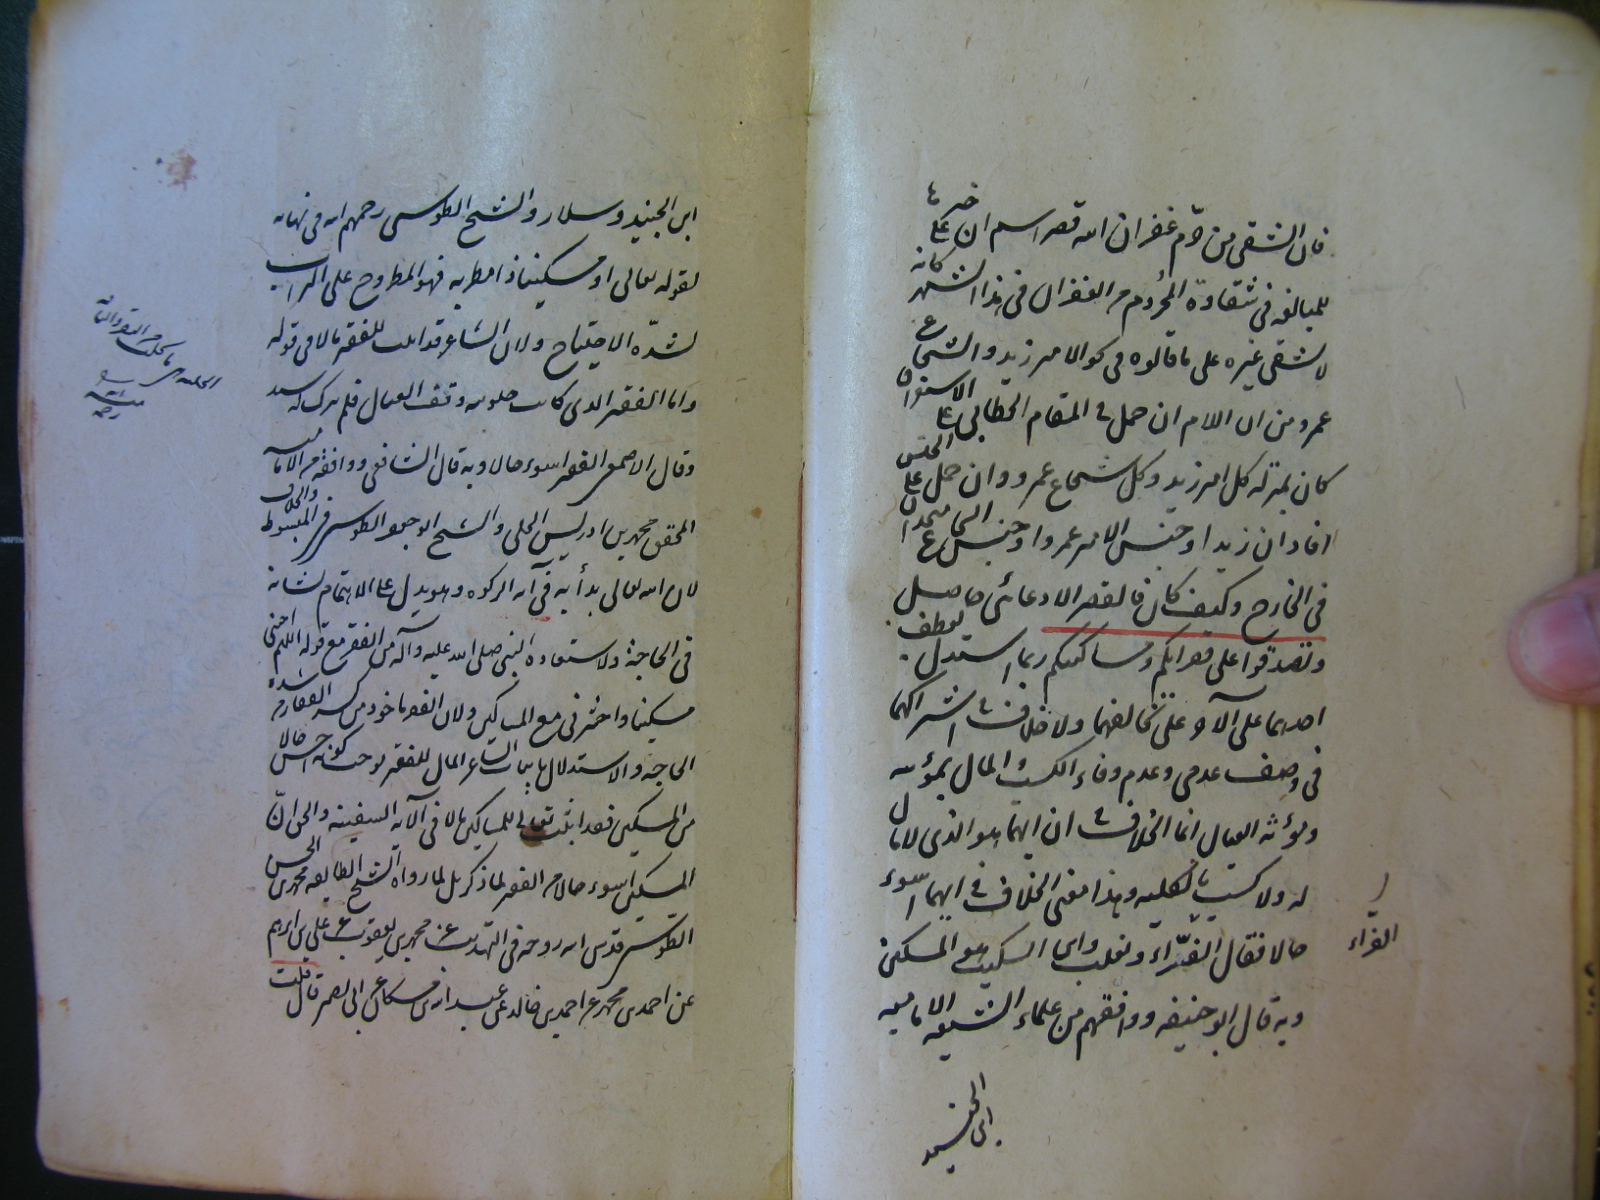 فان الشقى من حرّم غفران الله قصر اسم ان على خبرها
للمبالغه فى شقاوة المحروم من الغفران فى هذا الشهر كانه
لا شقى غيره على ما قالوه فى كو الامير زيد والشجاع
عمرو من ان اللام ان حمل فى المقام الخطابى على الاستغراق
كان بمنزله كل امير زيد وكل شجاع عمرو وان حمل على الجنس
افاد ان زيدا وجنس الامير عمروا وجنس الشجاع متحدان
فى الخارج وكيف كان فالقصر الادعائى حاصل
وتصدقوا على فقرائكم ومساكينكم ربما استدل بعطف
احدهما على الآخر على تخالفهما ولا خلاف فى اشتراكهما
فى وصف عدمى وعدم وفاء الكسب والمال بمؤنته
ومؤنة العيال انما الخلاف فى ان ايهما هو الذى لا مال
له ولا كسب بالكليه وهذا معنى الخلاف فى ايهما اسوء
حالا فقال الفرّاء وثعلب وابن السكيت هو المسكين
الفرّاء
وبه قال ابو حنيفه ووافقهم من علماء الشيعه الاماميه
ابن الجنيد
ابن الجنيد وسلار والشيخ الطوسى رحمهم الله فى نهايته
لقوله تعالى او مسكينا ذا متربه فهو المطروح على التراب
لشدّه الاحتياج ولان الشاعر قد اثبت للفقير مالا فى قوله
واما الفقير الذى كانت حلوبته وفق العيال فلم يترك له سبد
وقال الاصمعى الفقير اسوء حالا وبه قال الشافعى ووافقه من الاماميه
المحقق محمد بن ادريس الحلى والشيخ ابو جعفر الطوسى فى المبسوط والخلاف
لان الله تعالى بدأ به فى آيه الزكوه وهو يدل على الاهتمام بشانه
فى الحاجة ولاستعاذة النبى صلى الله عليه وآله من الفقر مع قوله اللهم احينى
مسكينا واحشرنى مع المساكين ولان الفقر ماخوذ من كسر الفقار من شدة
الحاجه والاستدلال باثبات الشاعر المال للفقير لا يوجب كونه احسن حالا
من المسكين فقد اثبت تعالى للمساكين مالا فى آلايه السفينه والحق انّ
المسكين اسوء حالا من الفقير لما ذكر بل لما رواه الشيخ الطايفه محمد بن الحسن
الطوسى قدس الله روحه فى التهذيب عن محمد بن يعقوب عن على بن ابرهيم
عن احمد بن محمد عن احمد بن خالد عن عبد الله بن مسكان عن ابى بصير قال قلت